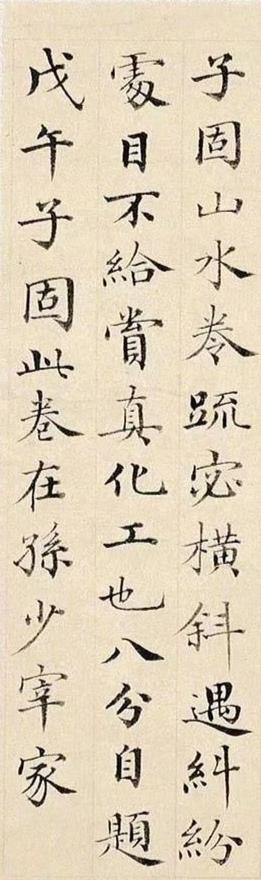 子固山水卷疏宓橫斜遇糾紛
處目不給賞真化工也八分自題
戊午子固此卷在孫少宰家